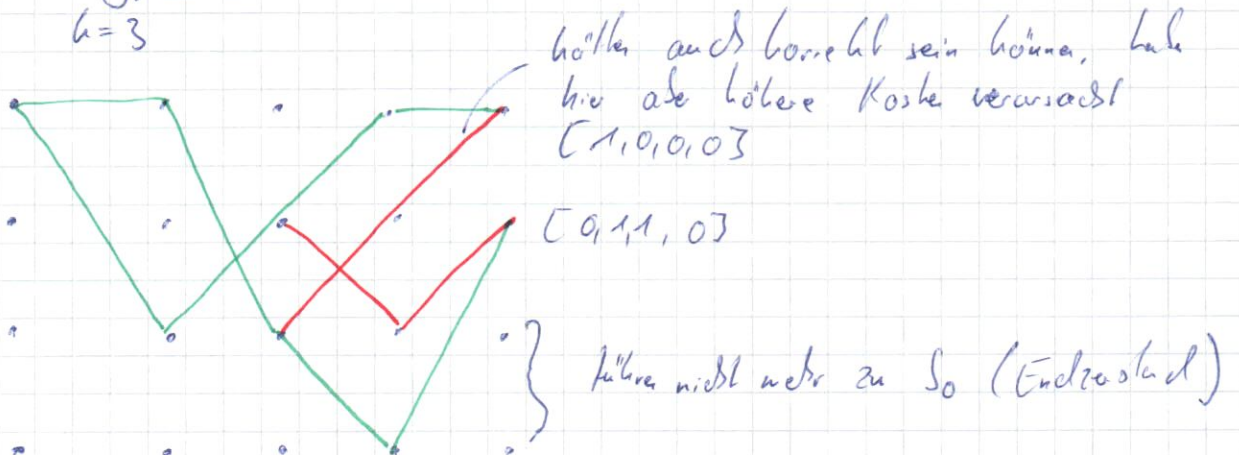 k=3
hätte auch korrekt sein können, hat
hier aber höhere Kosten verursacht
[1,0,0,0]
[0,1,1,0]
führen nicht mehr zu S₀ (Endzustand)